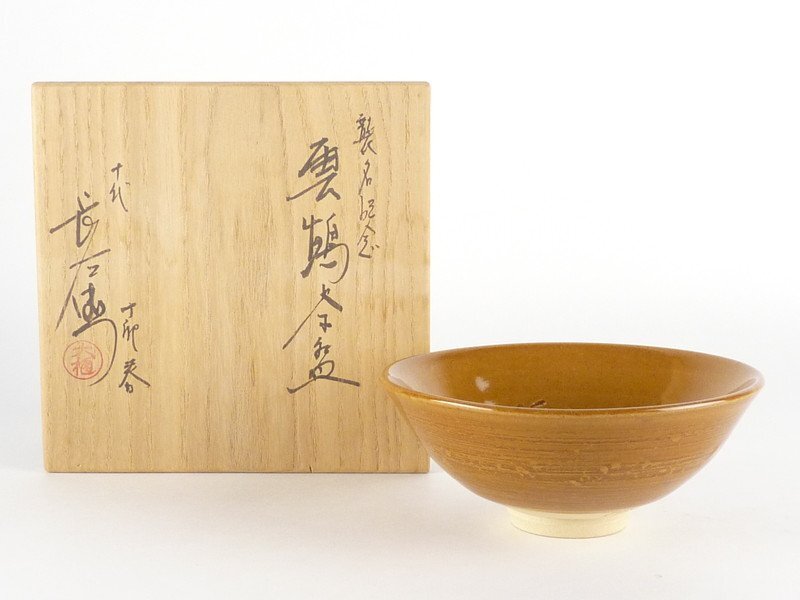 襲名記念
雲鶴茶盌
十代
長左衛門
丁卯春